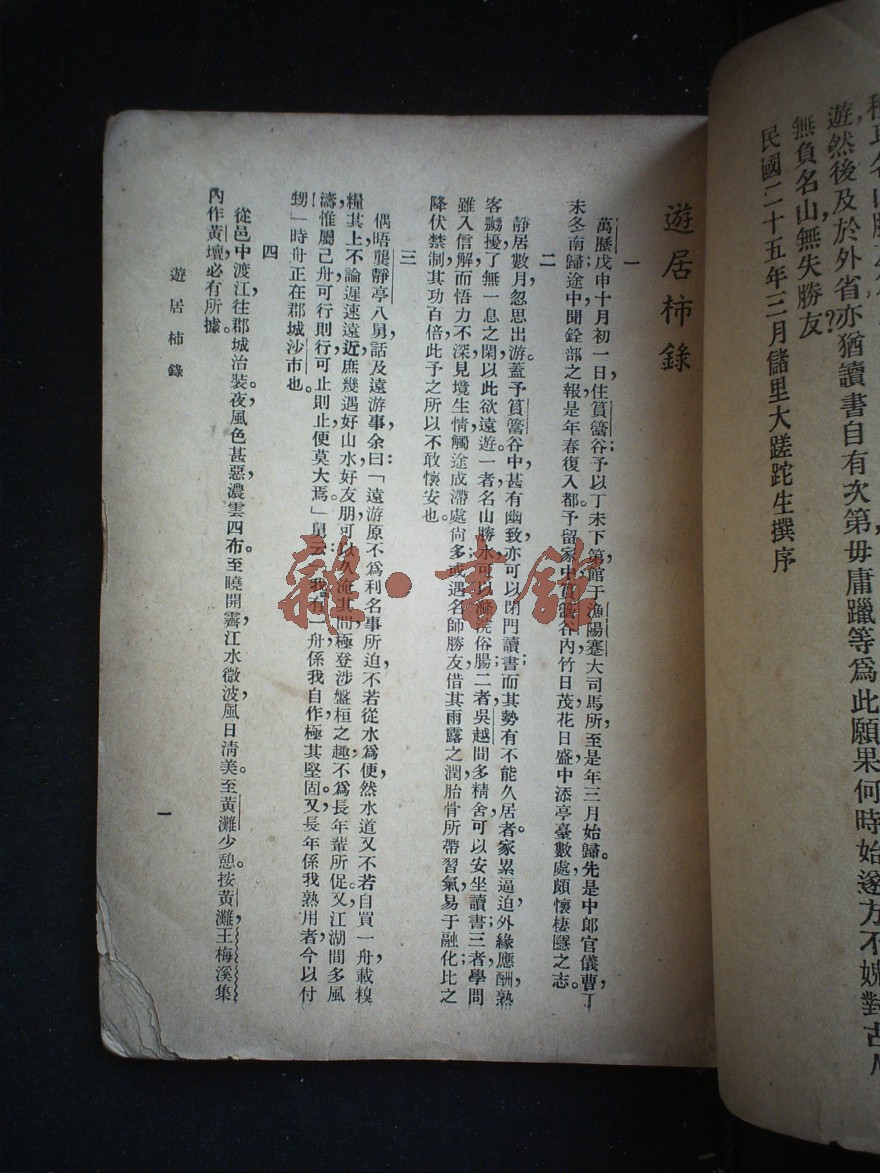 遊然後及於外省亦猶讀書自有次第毋庸躐等爲此願果何時始遂方不
無負名山,無失勝友?
民國二十五年三月儲里大蹉跎生撰序
遊居柿錄
一
萬曆戊申十月初一日,住篔簹谷;予以丁未下第,館于漁陽蹇大司馬所,至是年三月始歸。先是中郎官儀曹,丁
未冬南歸,途中聞銓部之報,是年春復入都,予留家中。篔簹谷內,竹日茂,花日盛,中添亭臺數處,頗懷棲隱之志。
二
靜居數月,忽思出游。蓋予篔簹谷中,甚有幽致,亦可以閉門讀書;而其勢有不能久居者:家累逼迫,外緣應酬,熟
客嬲擾,了無一息之閑。以此欲遠遊。一者,名山勝水,可以滌浣俗腸;二者,吳越間多精舍,可以安坐讀書;三者,學問
雖入信解,而悟力不深,見境生情,觸途成滯處尙多;或遇名師勝友,借其雨露之潤,胎骨所帶習氣,易于融化,比之
降伏禁制,其功百倍。此予之所以不敢懷安也。
三
偶晤龔靜亭八舅,話及遠游事,余曰:「遠游原不爲利名事所迫,不若從水爲便。然水道又不若自買一舟,載糗
糧其上,不論遲速遠近,庶幾遇好山水,好友朋,可以久流其間,極登涉盤桓之趣,不爲長年輩所促。又江湖間多風
濤,惟屬己舟,可行則行,可止則止,便莫大焉。」舅云:「我有一舟,係我自作,極其堅固。又長年係我熟用者,今以付
甥」時舟正在郡城沙市也。
四
從邑中渡江往郡城治裝。夜,風色甚惡,濃雲四布。至曉開霽,江水微波,風日淸美。至黃灘少憩。按黃灘,王梅溪集
內作黃壇,必有所據。
遊居柿錄
一